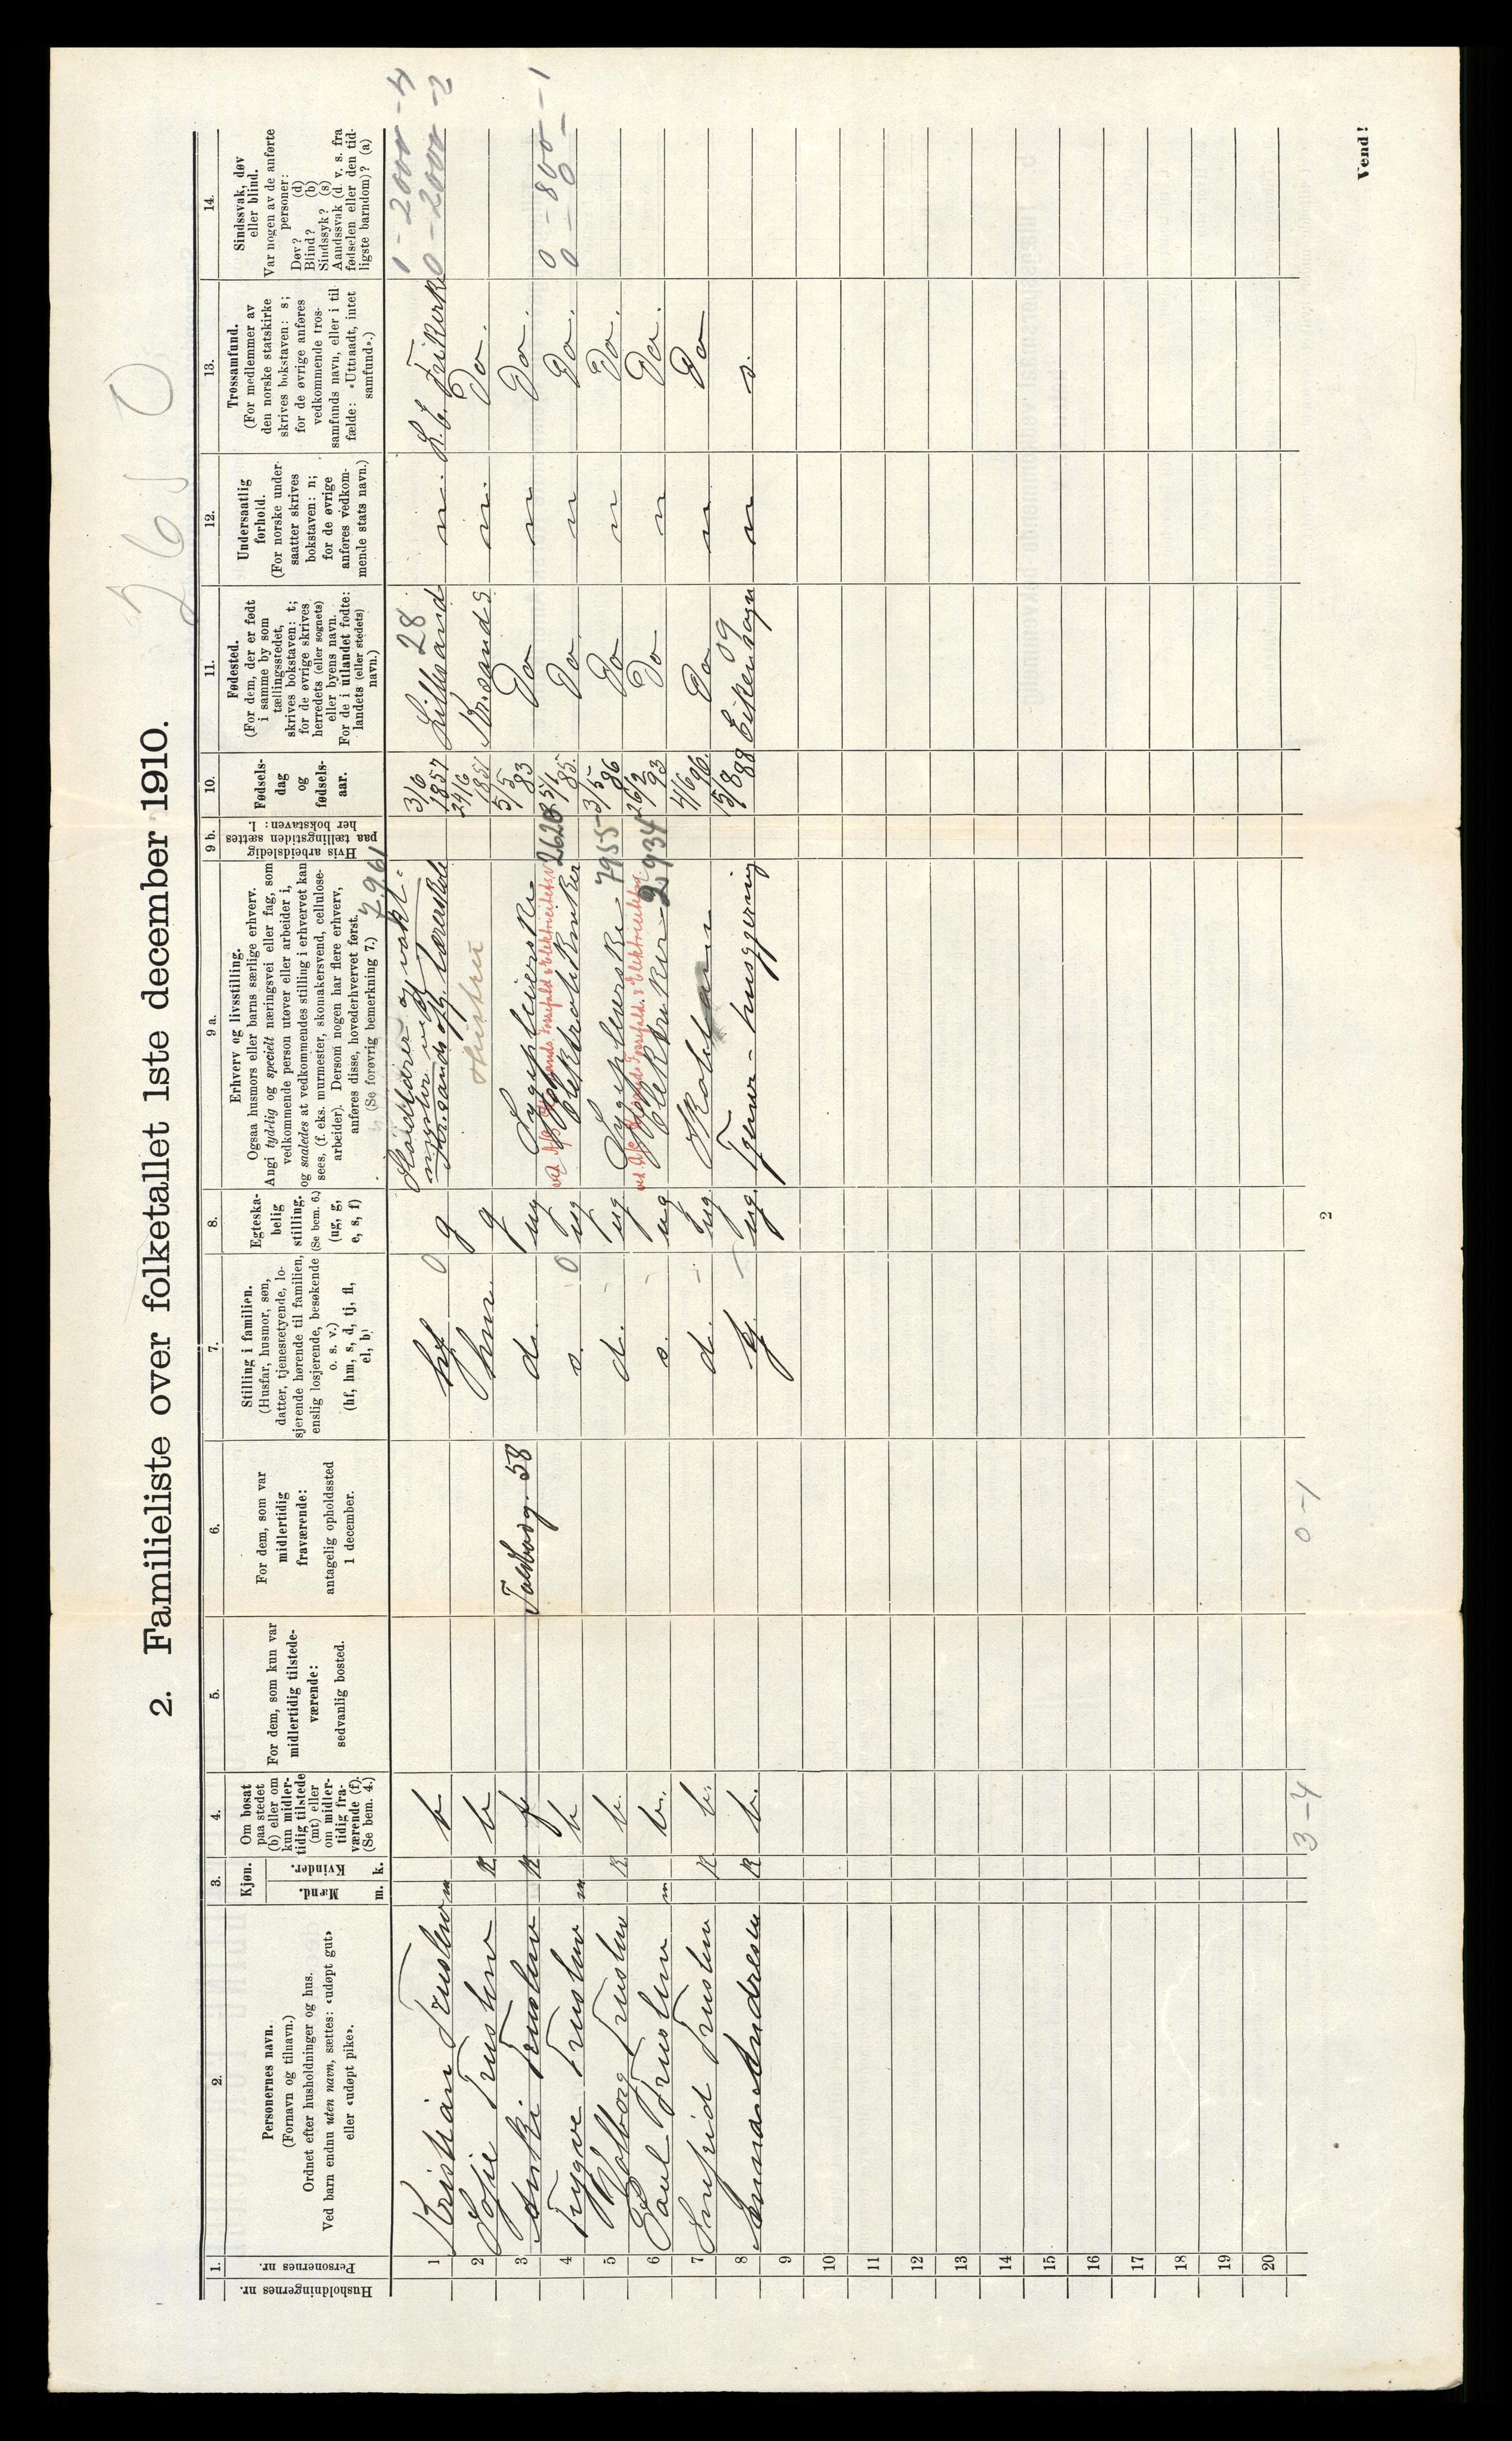 2. Familieliste over folketallet 1ste december 1910.
2610
1.
Husholdningernes nr.
Personernes nr.
2.
Personernes navn.
(Fornavn og tilnavn.)
Ordnet efter husholdninger og hus.
Ved barn endnu uten navn, sættes: «udøpt gut»
eller «udøpt pike».
3.
Kjøn.
Mænd.
Kvinder.
m. k.
4.
Om bosat
paa stedet
(b) eller om
kun midler-
tidig tilstede
(mt) eller
om midler-
tidig fra-
værende (f).
(Se bem. 4.)
5.
For dem, som kun var
midlertidig tilstede-
værende:
sedvanlig bosted.
6.
For dem, som var
midlertidig
fraværende:
antagelig opholdssted
1 december.
7.
Stilling i familien.
(Husfar, husmor, søn,
datter, tjenestetyende, lo-
sjerende hørende til familien,
enslig losjerende, besøkende
o. s. v.)
(hf, hm, s, d, tj, fl,
el, b)
8.
Egteska-
belig
stilling.
(Se bem. 6.)
(ug, g,
e, s, f)
9 a.
Erhverv og livsstilling.
Ogsaa husmors eller barns særlige erhverv.
Angi tydelig og specielt næringsvei eller fag, som
vedkommende person utøver eller arbeider i,
og saaledes at vedkommendes stilling i erhvervet kan
sees, (f. eks. murmester, skomakersvend, cellulose-
arbeider). Dersom nogen har flere erhverv,
anføres disse, hovederhvervet først.
(Se forøvrig bemerkning 7.)
7.961
9 b.
Hvis arbeidsledig
paa tællingstiden sættes
her bokstaven: l.
10.
Fødsels-
dag
og
fødsels-
aar.
11.
Fødested.
(For dem, der er født
i samme by som
tællingsstedet,
skrives bokstaven: t;
for de øvrige skrives
herredets (eller sognets)
eller byens navn.
For de i utlandet fødte:
landets (eller stedets)
navn.)
12.
Undersaatlig
forhold.
(For norske under-
saatter skrives
bokstaven: n;
for de øvrige
anføres vedkom-
mende stats navn.)
13.
Trossamfund.
(For medlemmer av
den norske statskirke
skrives bokstaven: s;
for de øvrige anføres
vedkommende tros-
samfunds navn, eller i til-
fælde: «Uttraadt, intet
samfund».)
14.
Sindssvak, døv
eller blind.
Var nogen av de anførte
personer:
Døv? (d)
Blind? (b)
Sindssyk? (s)
Aandssvak (d. v. s. fra
fødselen eller den tid-
ligste barndom)? (a)
1 Kristian Truslew m b hf 0 g Skoledirer og vakt-
mester ved
Kr.sands off. lærerskole 3/6 1857 Lillesand 28 n. L. E. Frikirke 1-2000-4
2 Sofie Truslew k b hm. g Hustru 24/6 1851 Kr.sand S n. Do. 0-2000-2
3 Truslew k f Toldbodg. 58 d. ug Sygepleierske 5/5 83 Do n Do.
4 Trygve Truslew m b s. 0 ug Elektrotekniker 2620 25/1 85. Do n Do. 0-800-1
5 Valborg Truslew k b. d. ug Sygepleierske 7955 3/5 86 Do n Do.
6 Paul Truslew m b. s. ug Elektriker 2.934 26/2 93 Do n Do.
7 Snefrid Truslew k b. d. ug. 4/6 96. Do n Do
8 Anna Andresen k b. tj. ug. Tjener-husgjerning 15/8 88 Eiken sogn 09 n s.
9
10
11
12
13
14
15
16
17
18
19
20
3-4
0-1
2
Vend!